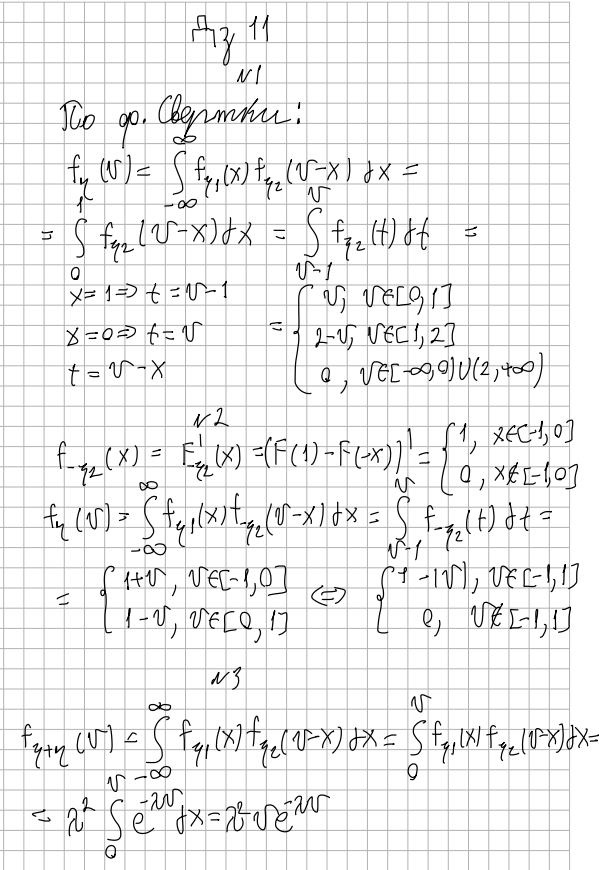 Дз 11
№1
По ф. Свертки:
f_η(v) = ∫_{-∞}^{∞} f_{η1}(x) f_{η2}(v-x) dx =
= ∫_0^1 f_{η2}(v-x) dx = ∫_{v-1}^{v} f_{η2}(t) dt =
x=1 => t=v-1
x=0 => t=v
t = v-x
= { v, v∈[0,1]
2-v, v∈[1,2]
0, v∈[-∞,0)∪(2,+∞)
№2
f_{-η2}(x) = F'_{η2}(x) = (F(1)-F(-x))' = { 1, x∈[-1,0]
0, x∉[-1,0]
f_η(v) = ∫_{-∞}^{∞} f_{η1}(x) f_{-η2}(v-x) dx = ∫_{v-1}^{v} f_{-η2}(t) dt =
= { 1+v, v∈[-1,0] <=> { 1-|v|, v∈[-1,1]
1-v, v∈[0,1] 0, v∉[-1,1]
№3
f_{η+η}(v) = ∫_{-∞}^{∞} f_{η1}(x) f_{η2}(v-x) dx = ∫_0^v f_{η1}(x) f_{η2}(v-x) dx =
= λ² ∫_0^v e^{-λv} dx = λ² v e^{-λv}